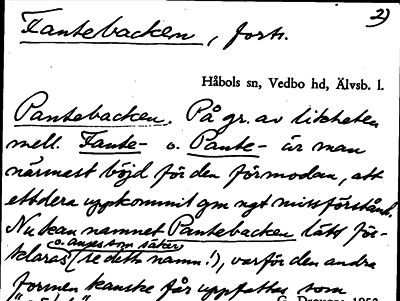 2)
Fantebacken, forts.
Håbols sn, Vedbo hd, Älvsb. l.
Pantebacken. På gr. av likheten
mell. Fante- o. Pante- är man
närmast böjd för den förmodan, att
ettdera uppkommit gm ngt missförstånd.
Nu kan namnet Pantebacken lätt för-
o. anges som säker
klaras (se detta namn!), varför den andra
formen kanske får uppfattas som